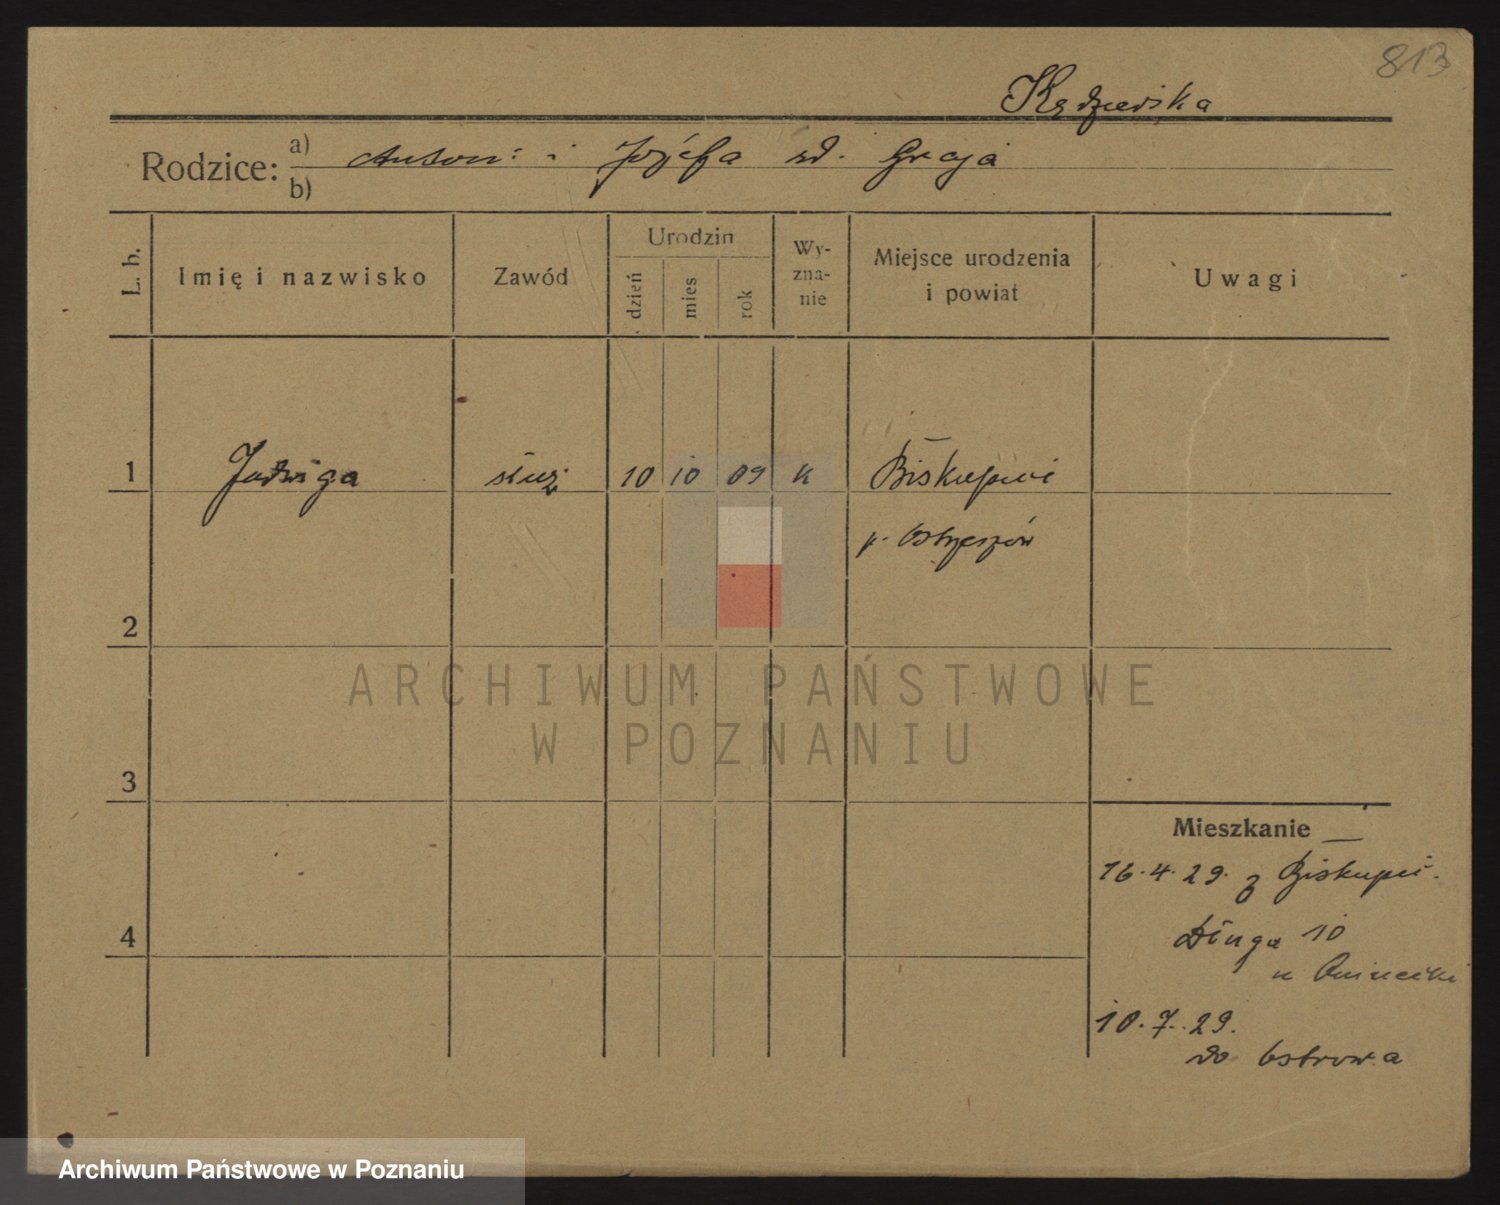 813
Kędzierska
Rodzice: a) Antoni i Józefa zd. Graja
b)
L. b.
Imię i nazwisko
Zawód
Urodzin
dzień
mies
rok
Wy-
zna-
nie
Miejsce urodzenia
i powiat
Uwagi
1 Jadwiga służ 10 10 09 k Biskupice
p. Ostrzeszów
2
3
4
Mieszkanie
16.4.29. z Biskupic.
Długa 10
u
10.7.29.
do Ostrowa
ARCHIWUM PAŃSTWOWE
W POZNANIU
Archiwum Państwowe w Poznaniu